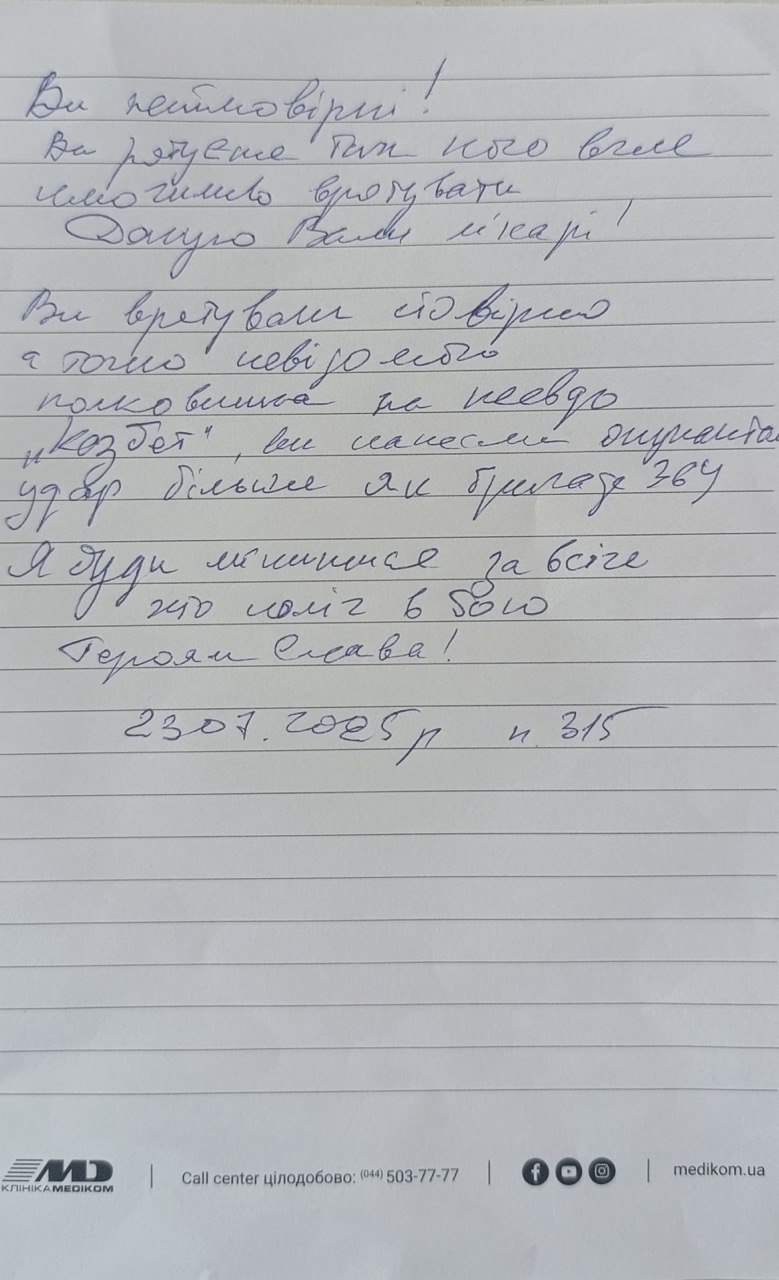 Ви неймовірні!
Ви рятуєте тих кого вже
неможливо врятувати
Дякую Вам лікарі!
Ви врятували
а точно невідомого
полковника на псевдо
„Козбет", ви нанесли
удар більше як бригада ЗСУ
Я буду за всіх
хто поліг в бою
Героям Слава!
23 07. 2025р п. 315
MD
КЛІНІКАMEDIKOM
Call center цілодобово: (044) 503-77-77
medikom.ua